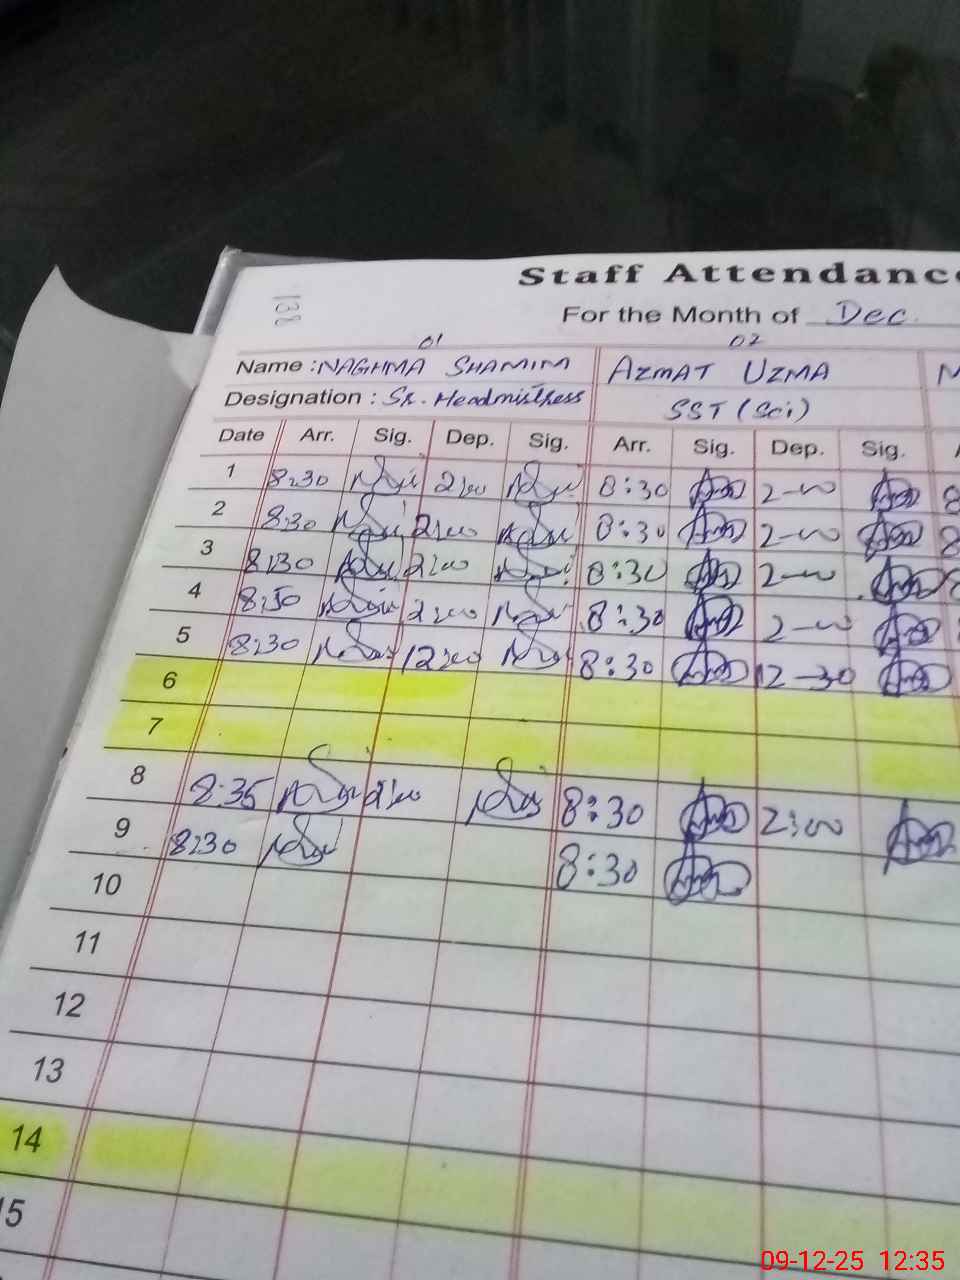 138
Staff Attendanc
For the Month of Dec.
01 02
Name : NAGHMA SHAMIM AZMAT UZMA
Designation : Sr. Headmistress SST (Sci)
Date Arr. Sig. Dep. Sig. Arr. Sig. Dep. Sig.
1 8:30 2:00 8:30 2-00
2 8:30 2:00 8:30 2-00
3 8:30 2:00 8:30 2-00
4 2:00 8:30 2-00
5 8:30 12:00 8:30 12-30
6
7
8 8:35 2:00 8:30 2:00
9 8:30 8:30
10
11
12
13
14
15
09-12-25 12:35